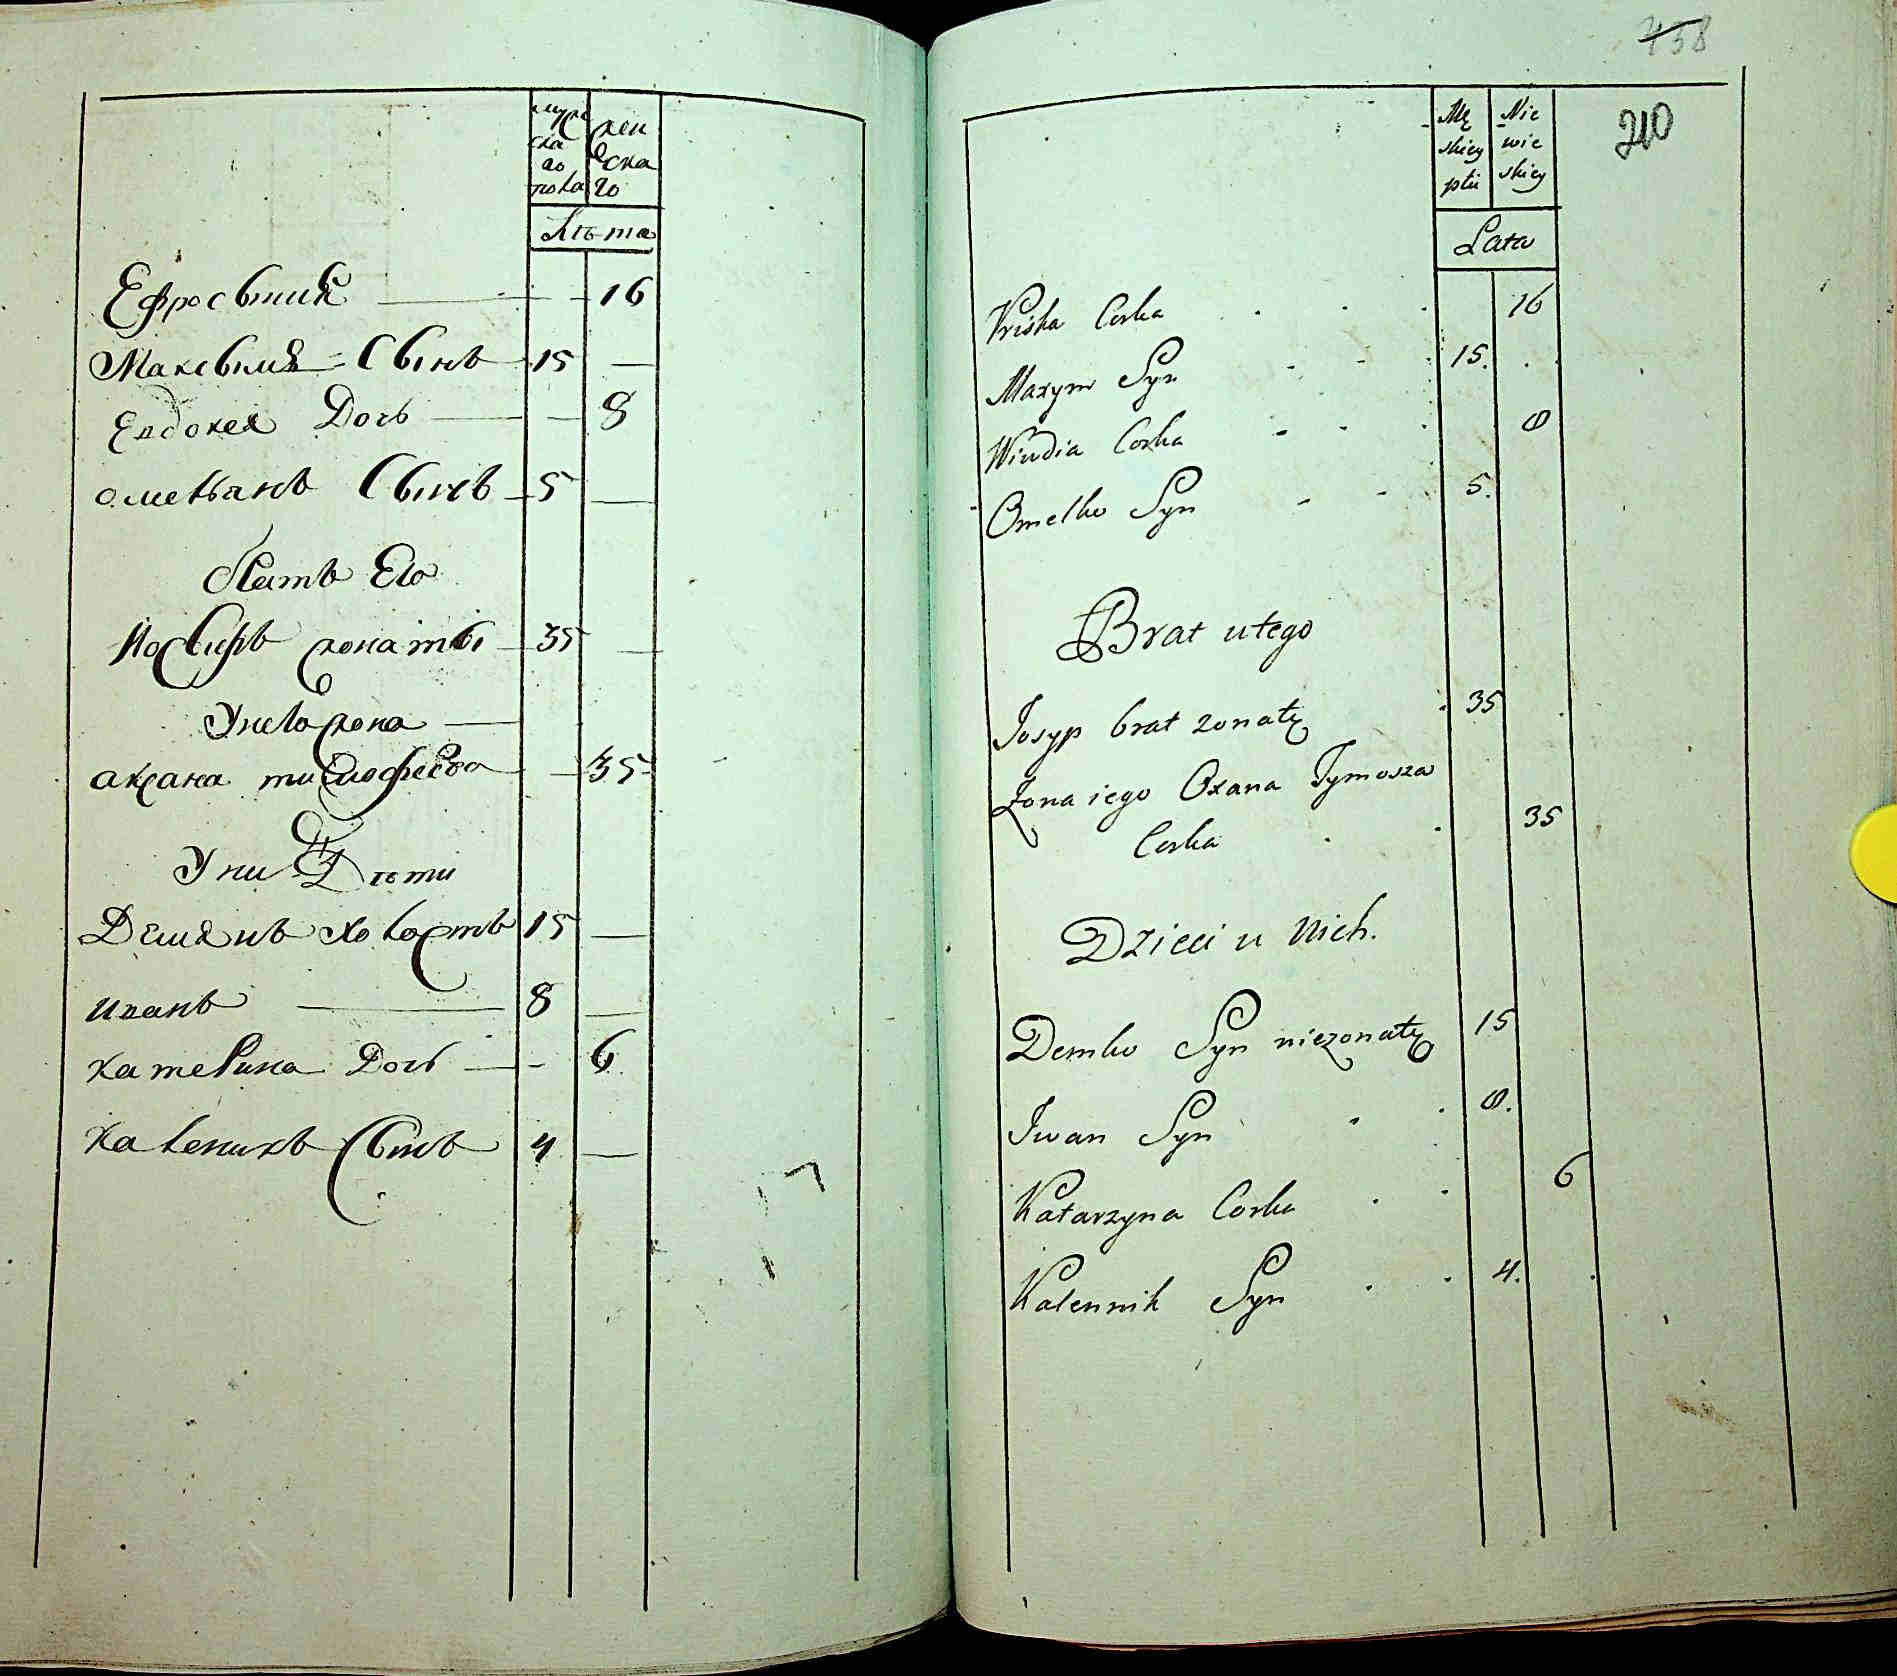 муже
ска
го
пола
жен
ска
го
Лѣта
Ефросыния 16
Максымъ Сынъ 15
Евдокея Дочь 8
Омельянъ Сынъ 5
Братъ Его
Иосифъ жонаты 35
У него жона
Аксана тимофеева 35
У них Дѣти
Демянъ холостъ 15
иванъ 8
катерина Дочь 6
каленикъ Сынъ 4
458
210
Mę
skiey
płci
Nie
wie
skiey
Lata
Priska Corka 16
Maxym Syn 15.
Wiudia Corka 8
Omelko Syn 5.
Brat u tego
Josyp brat zonaty 35
Zona iego Oxana Tymosza
Corka 35
Dzieci u Nich.
Demko Syn niezonaty 15
Iwan Syn 8.
Katarzyna Corka 6
Kalennik Syn 4.